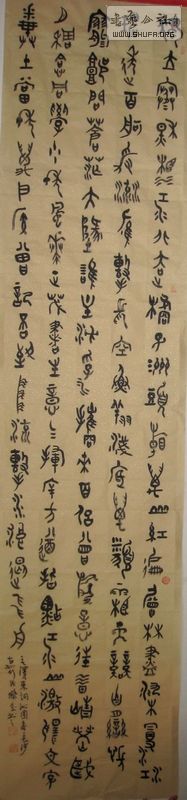 WWW.SHUFA.ORG
立寒秋湘江北去橘子洲頭看萬山紅遍層林盡染漫江
碧透百舸爭流鷹擊長空魚翔淺底萬類霜天競自由悵
寥廓問蒼茫大地誰主沉浮攜來百侶曾游憶往昔崢嶸歲
月稠恰同學少年風華正茂書生意氣揮斥方遒指點江山激揚文字
糞土當年萬戶侯曾記否到中流擊水浪遏飛舟
毛澤東詞沁園春長沙